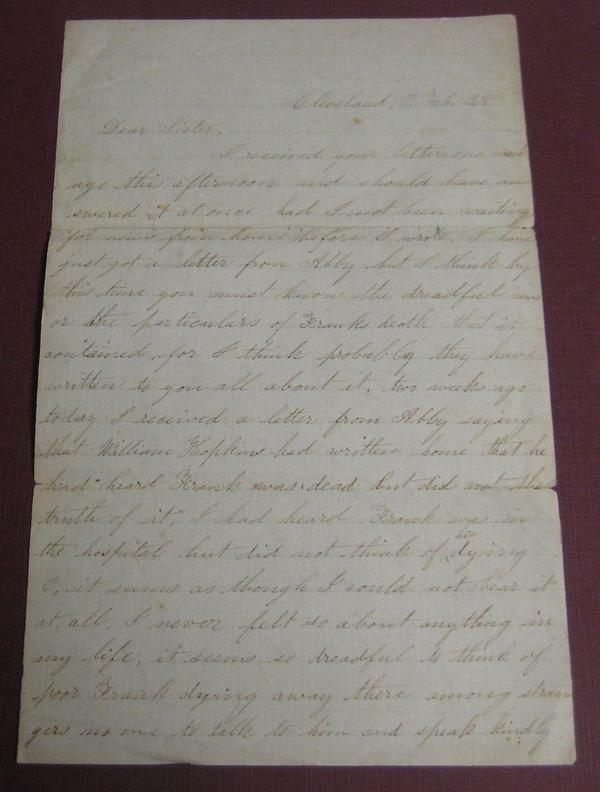 Cleveland, O. Feb. 28th
Dear Sister,
I received your letter one
ago this afternoon and should have an
swered it at once had I not been waiting
for news from home before I wrote. I have
just got a letter from Abby but I think by
this time you must know the dreadful news
or the particulars of Franks death that it
contained, for I think probably they have
written to you all about it, two weeks ago
today I received a letter from Abby saying
that William Hopkins had written home that he
had heard Frank was dead but did not the
truth of it, I had heard Frank was in
the hospital but did not think of his dying
O, it seems as though I could not bear it
at all, I never felt so about anything in
my life, it seems so dreadful to think of
poor Frank dying away there among stran
gers no one to talk to him and speak kindly